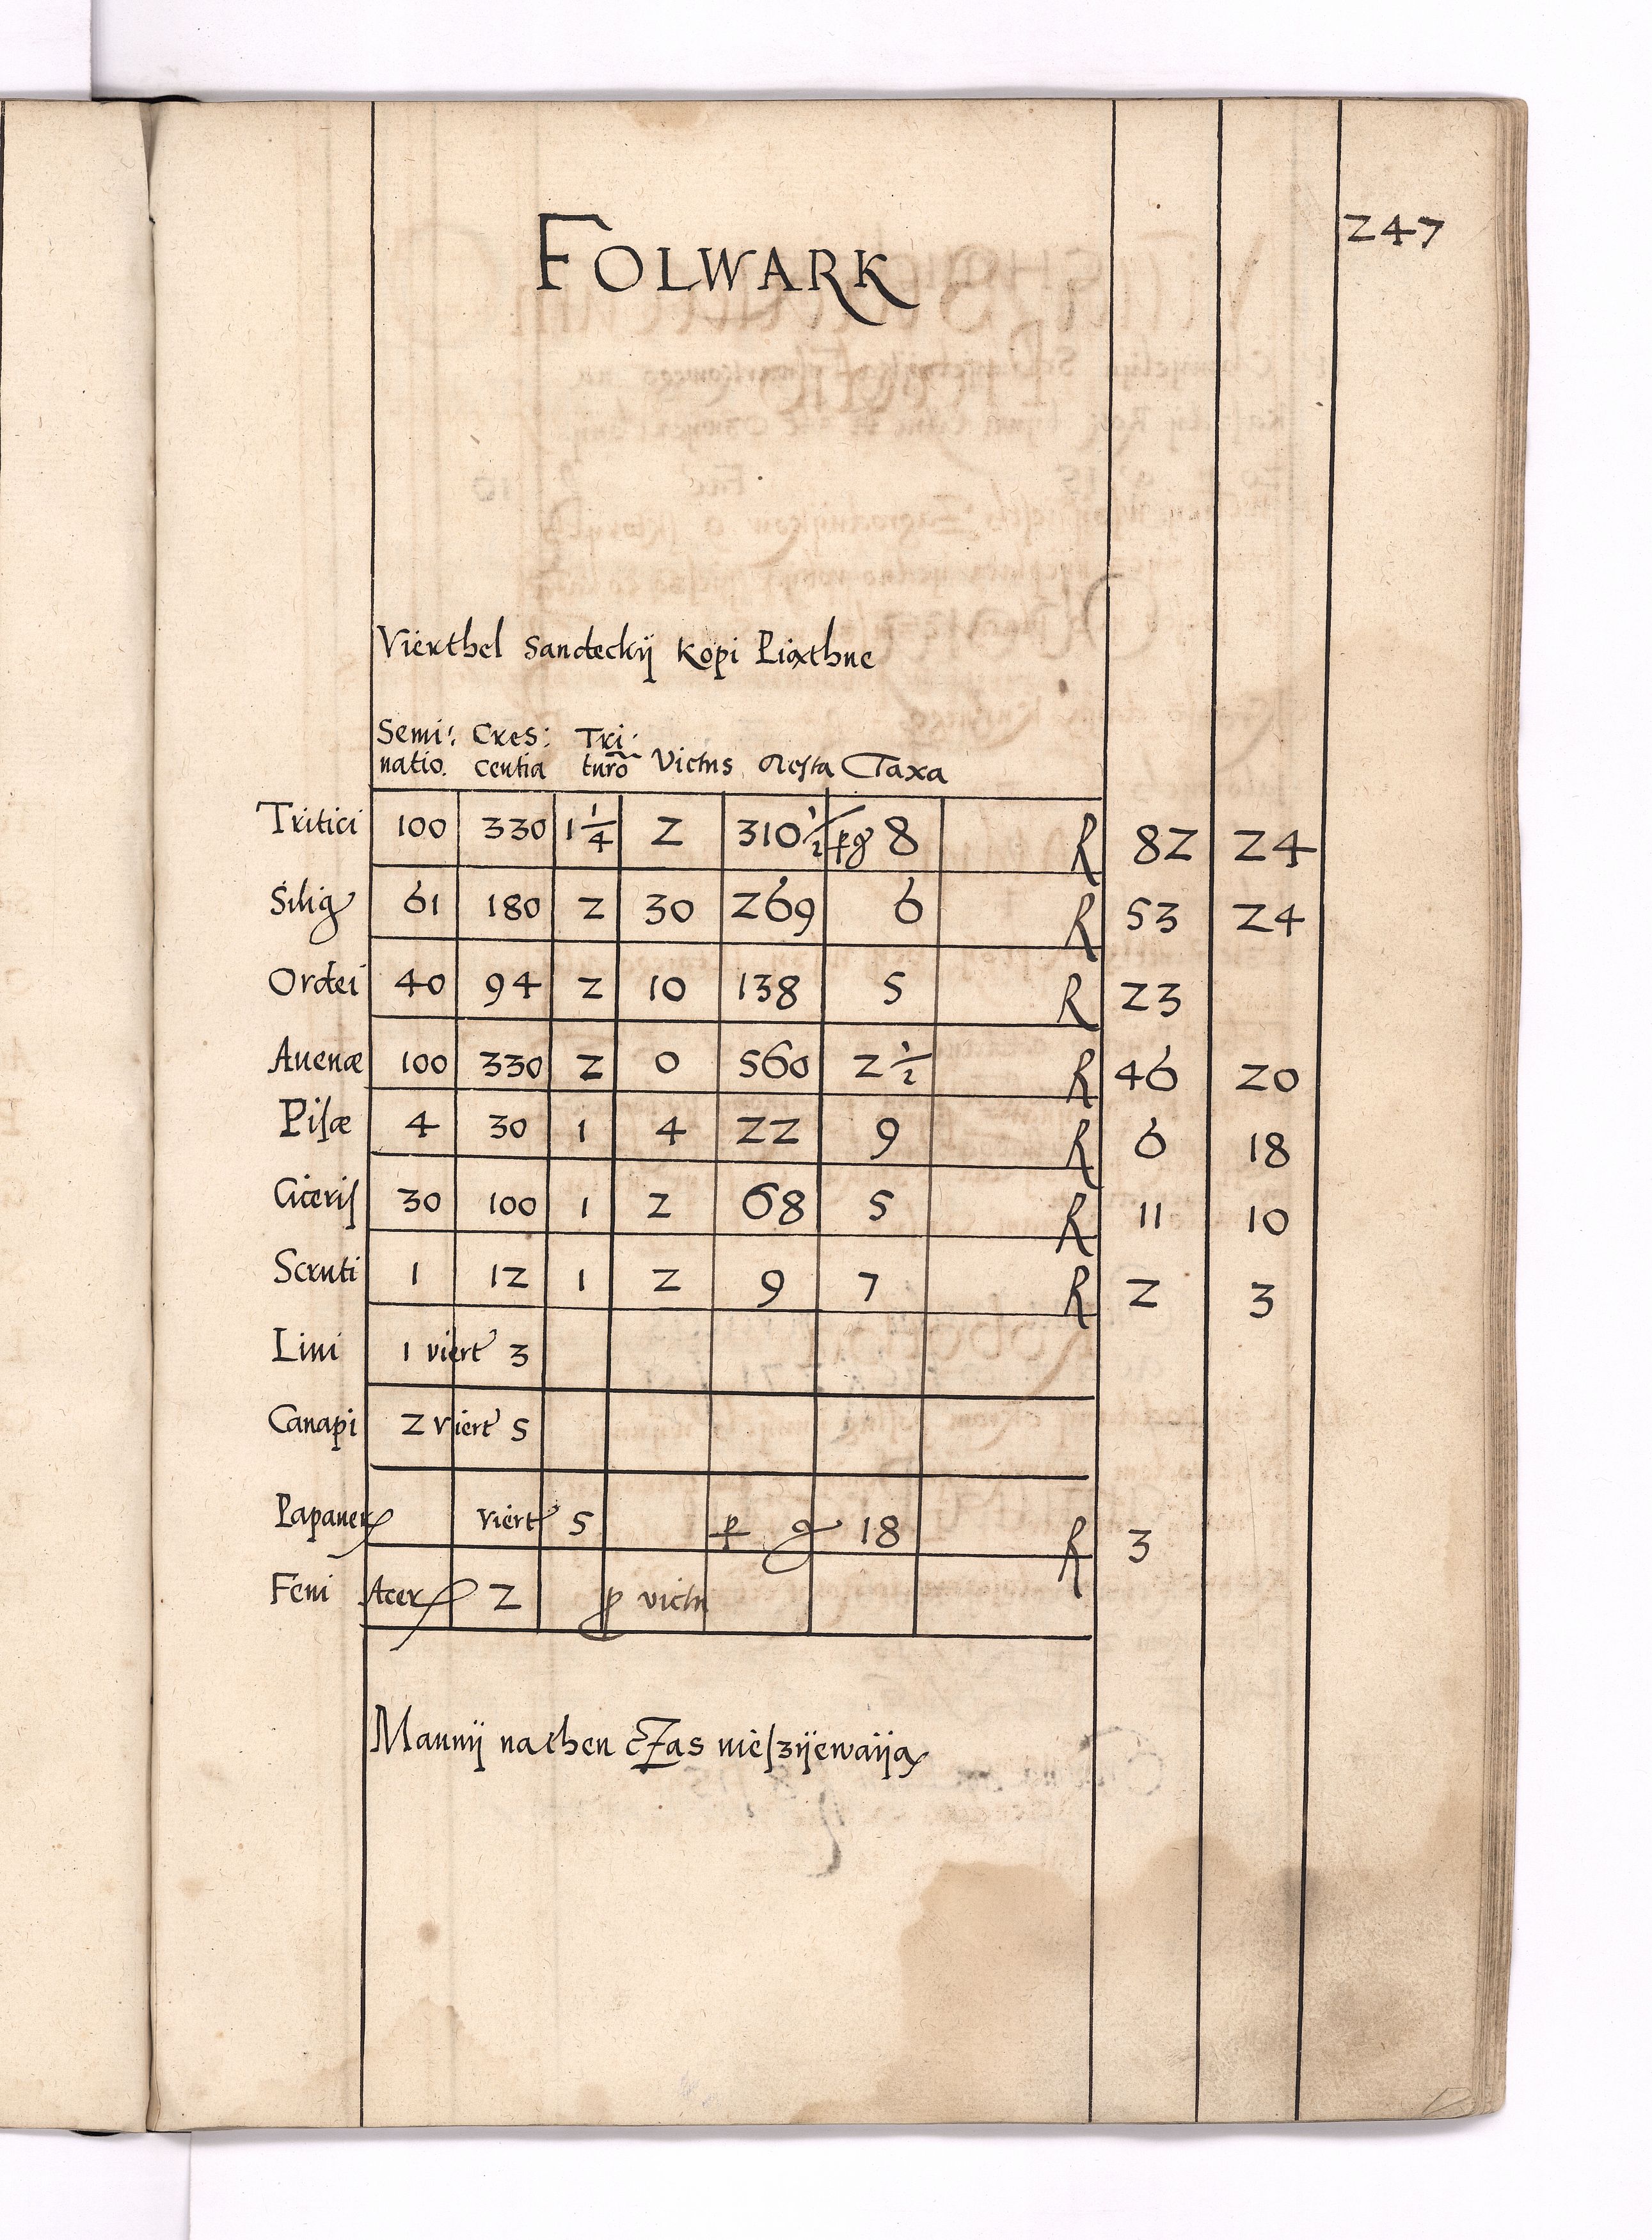 247
FOLWARK
Vierthel Sandeckij Kopi Piąthne
Semi: Cres: Tri:
natio. centia turo Victus Resta Taxa
Tritici 100 330 1 1/4 2 310 1/2 p g 8 R 82 24
Silig 61 180 2 30 269 6 R 53 24
Ordei 40 94 2 10 138 5 R 23
Auenæ 100 330 2 0 560 2 1/2 R 46 20
Pisæ 4 30 1 4 22 9 R 6 18
Ciceris 30 100 1 2 68 5 R 11 10
Scruti 1 12 1 2 9 7 R 2 3
Lini 1 viert 3
Canapi 2 viert 5
Papauer viert 5 p g 18 R 3
Feni Acer 2 p victu
Mannij nathen czas nieszijewaiją